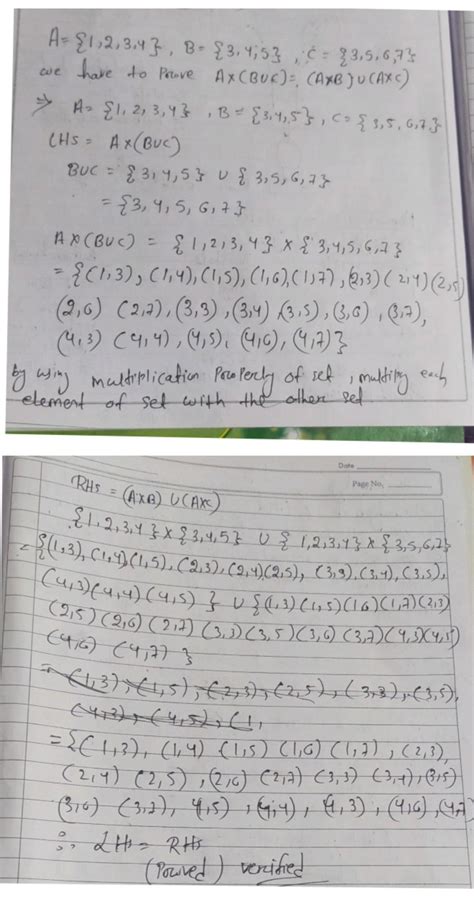 A = {1,2,3,4}, B = {3,4,5}, C = {3,5,6,7}
we have to Prove A×(BUC) = (A×B)U(A×C)
⇒ A = {1,2,3,4}, B = {3,4,5}, C = {3,5,6,7}
LHS = A×(BUC)
BUC = {3,4,5} U {3,5,6,7}
= {3,4,5,6,7}
A×(BUC) = {1,2,3,4} × {3,4,5,6,7}
= {(1,3), (1,4), (1,5), (1,6), (1,7), (2,3) (2,4) (2,5)
(2,6) (2,7), (3,3), (3,4) (3,5), (3,6), (3,7),
(4,3) (4,4), (4,5), (4,6), (4,7)}
by using multiplication Property of set, multiply each
element of set with the other set.
Date
Page No.
RHS = (A×B) U (A×C)
{1,2,3,4} × {3,4,5} U {1,2,3,4} × {3,5,6,7}
= {(1,3), (1,4) (1,5), (2,3), (2,4) (2,5), (3,3), (3,4), (3,5),
(4,3) (4,4) (4,5)} U {(1,3) (1,5) (1,6) (1,7) (2,3)
(2,5) (2,6) (2,7) (3,3) (3,5) (3,6) (3,7) (4,3) (4,5)
(4,6) (4,7)}
= (1,3), (1,5), (2,3), (2,5), (3,3), (3,5),
(4,3), (4,5), (1,
= {(1,3), (1,4) (1,5) (1,6) (1,7), (2,3),
(2,4) (2,5), (2,6) (2,7) (3,3) (3,4), (3,5)
(3,6) (3,7), 4,5), (4,4), (4,3), (4,6), (4,7
∴ LHS = RHS
(Proved) verified